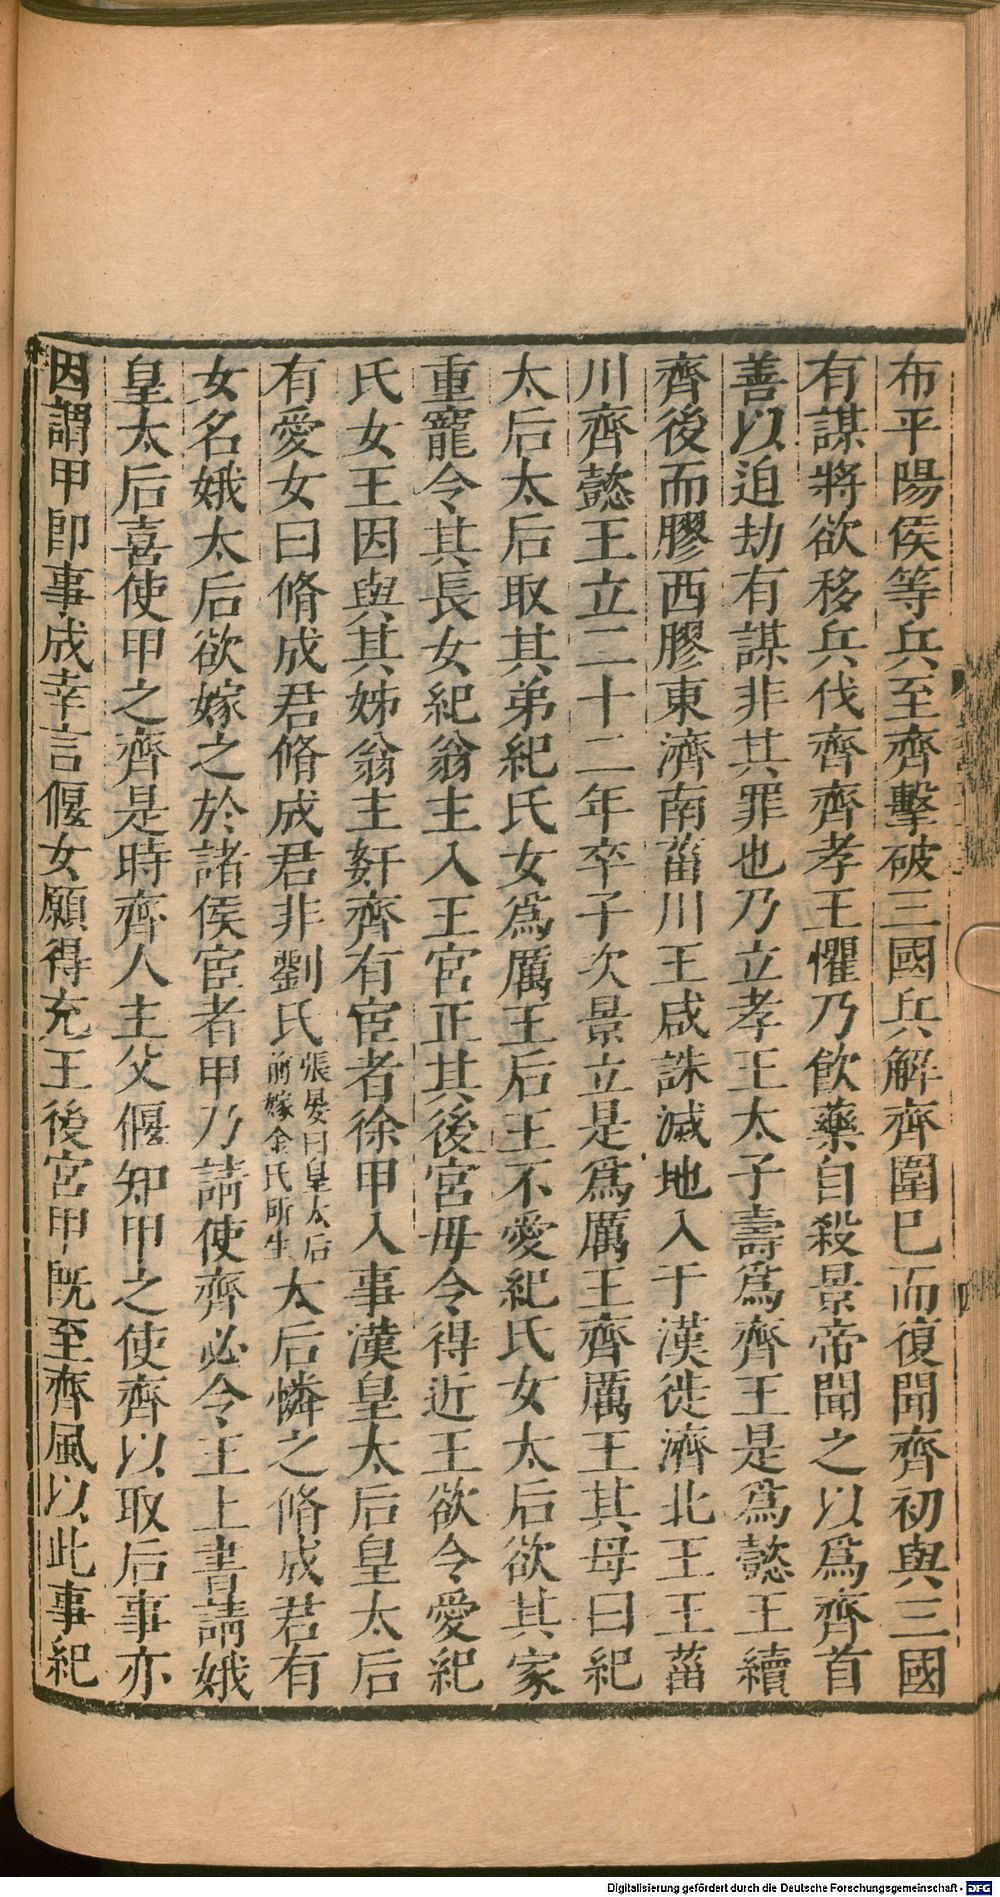 布平陽侯等兵至齊擊破三國兵解齊圍巳而復聞齊初與三國
有謀將欲移兵伐齊齊孝王懼乃飲藥自殺景帝聞之以爲齊首
善以迫劫有謀非其罪也乃立孝王太子壽爲齊王是爲懿王續
齊後而膠西膠東濟南菑川王咸誅滅地入于漢徙濟北王王菑
川齊懿王立二十二年卒子次景立是爲厲王齊厲王其母曰紀
太后太后取其弟紀氏女爲厲王后王不愛紀氏女太后欲其家
重寵令其長女紀翁主入王宮正其後宮毋令得近王欲令愛紀
氏女王因與其姊翁主姧齊有宦者徐甲入事漢皇太后皇太后
有愛女曰脩成君脩成君非劉氏張晏曰皇太后前嫁金氏所生太后憐之脩成君有
女名娥太后欲嫁之於諸侯宦者甲乃請使齊必令王上書請娥
皇太后喜使甲之齊是時齊人主父偃知甲之使齊以取后事亦
因謂甲卽事成幸言偃女願得充王後宮甲旣至齊風以此事紀
Digitalisierung gefördert durch die Deutsche Forschungsgemeinschaft - DFG